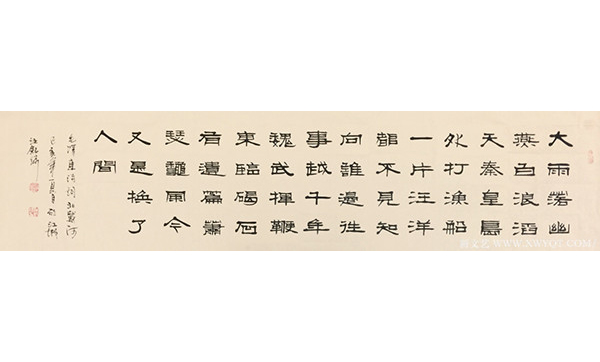 大雨落幽
燕白浪滔
天秦皇島
外打漁船
一片汪洋
都不見知
向誰邊往
事越千年
魏武揮鞭
東臨碣石
有遺篇蕭
瑟龝風今
又是換了
人間
毛澤東詩詞北戴河
己亥年